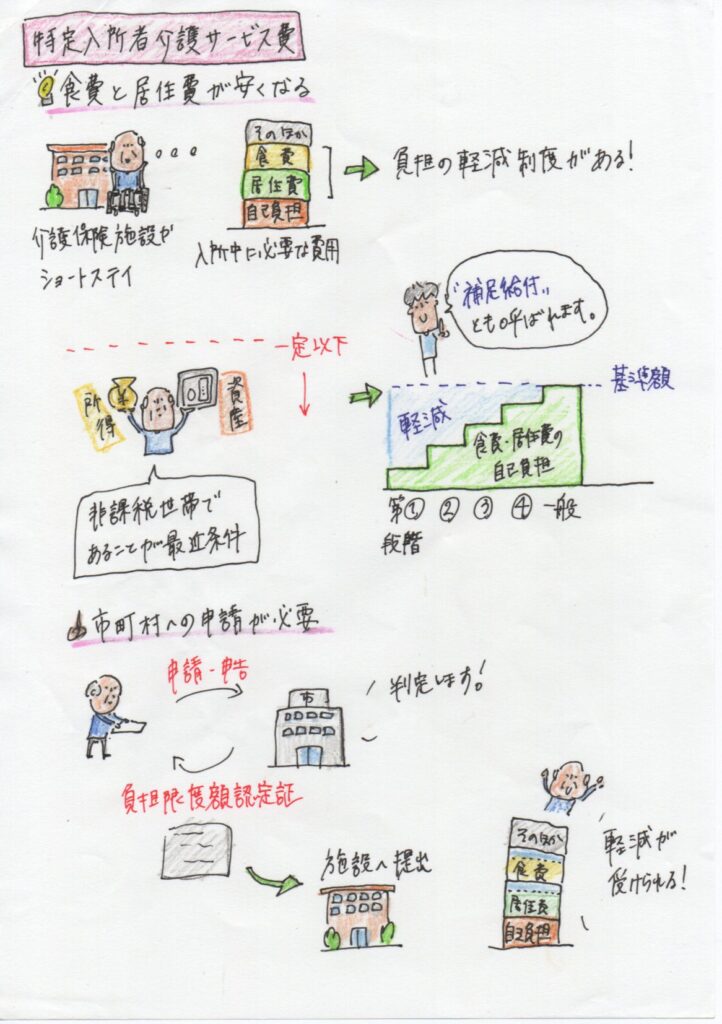 特定入所者介護サービス費
食費と居住費が安くなる
そのほか
食費
居住費
自己負担
負担の軽減制度がある!
介護保険施設や
ショートステイ
入所中に必要な費用
"補足給付"
とも呼ばれます。
一定以下
所得
¥
資産
基準額
軽減
食費・居住費の
自己負担
非課税世帯で
あることが最近条件
第① ② ③ ④ 一般
段階
市町村への申請が必要
申請・申告
市
判定します!
負担限度額認定証
施設へ提出
そのほか
食費
居住費
自己負担
軽減が
受けられる!